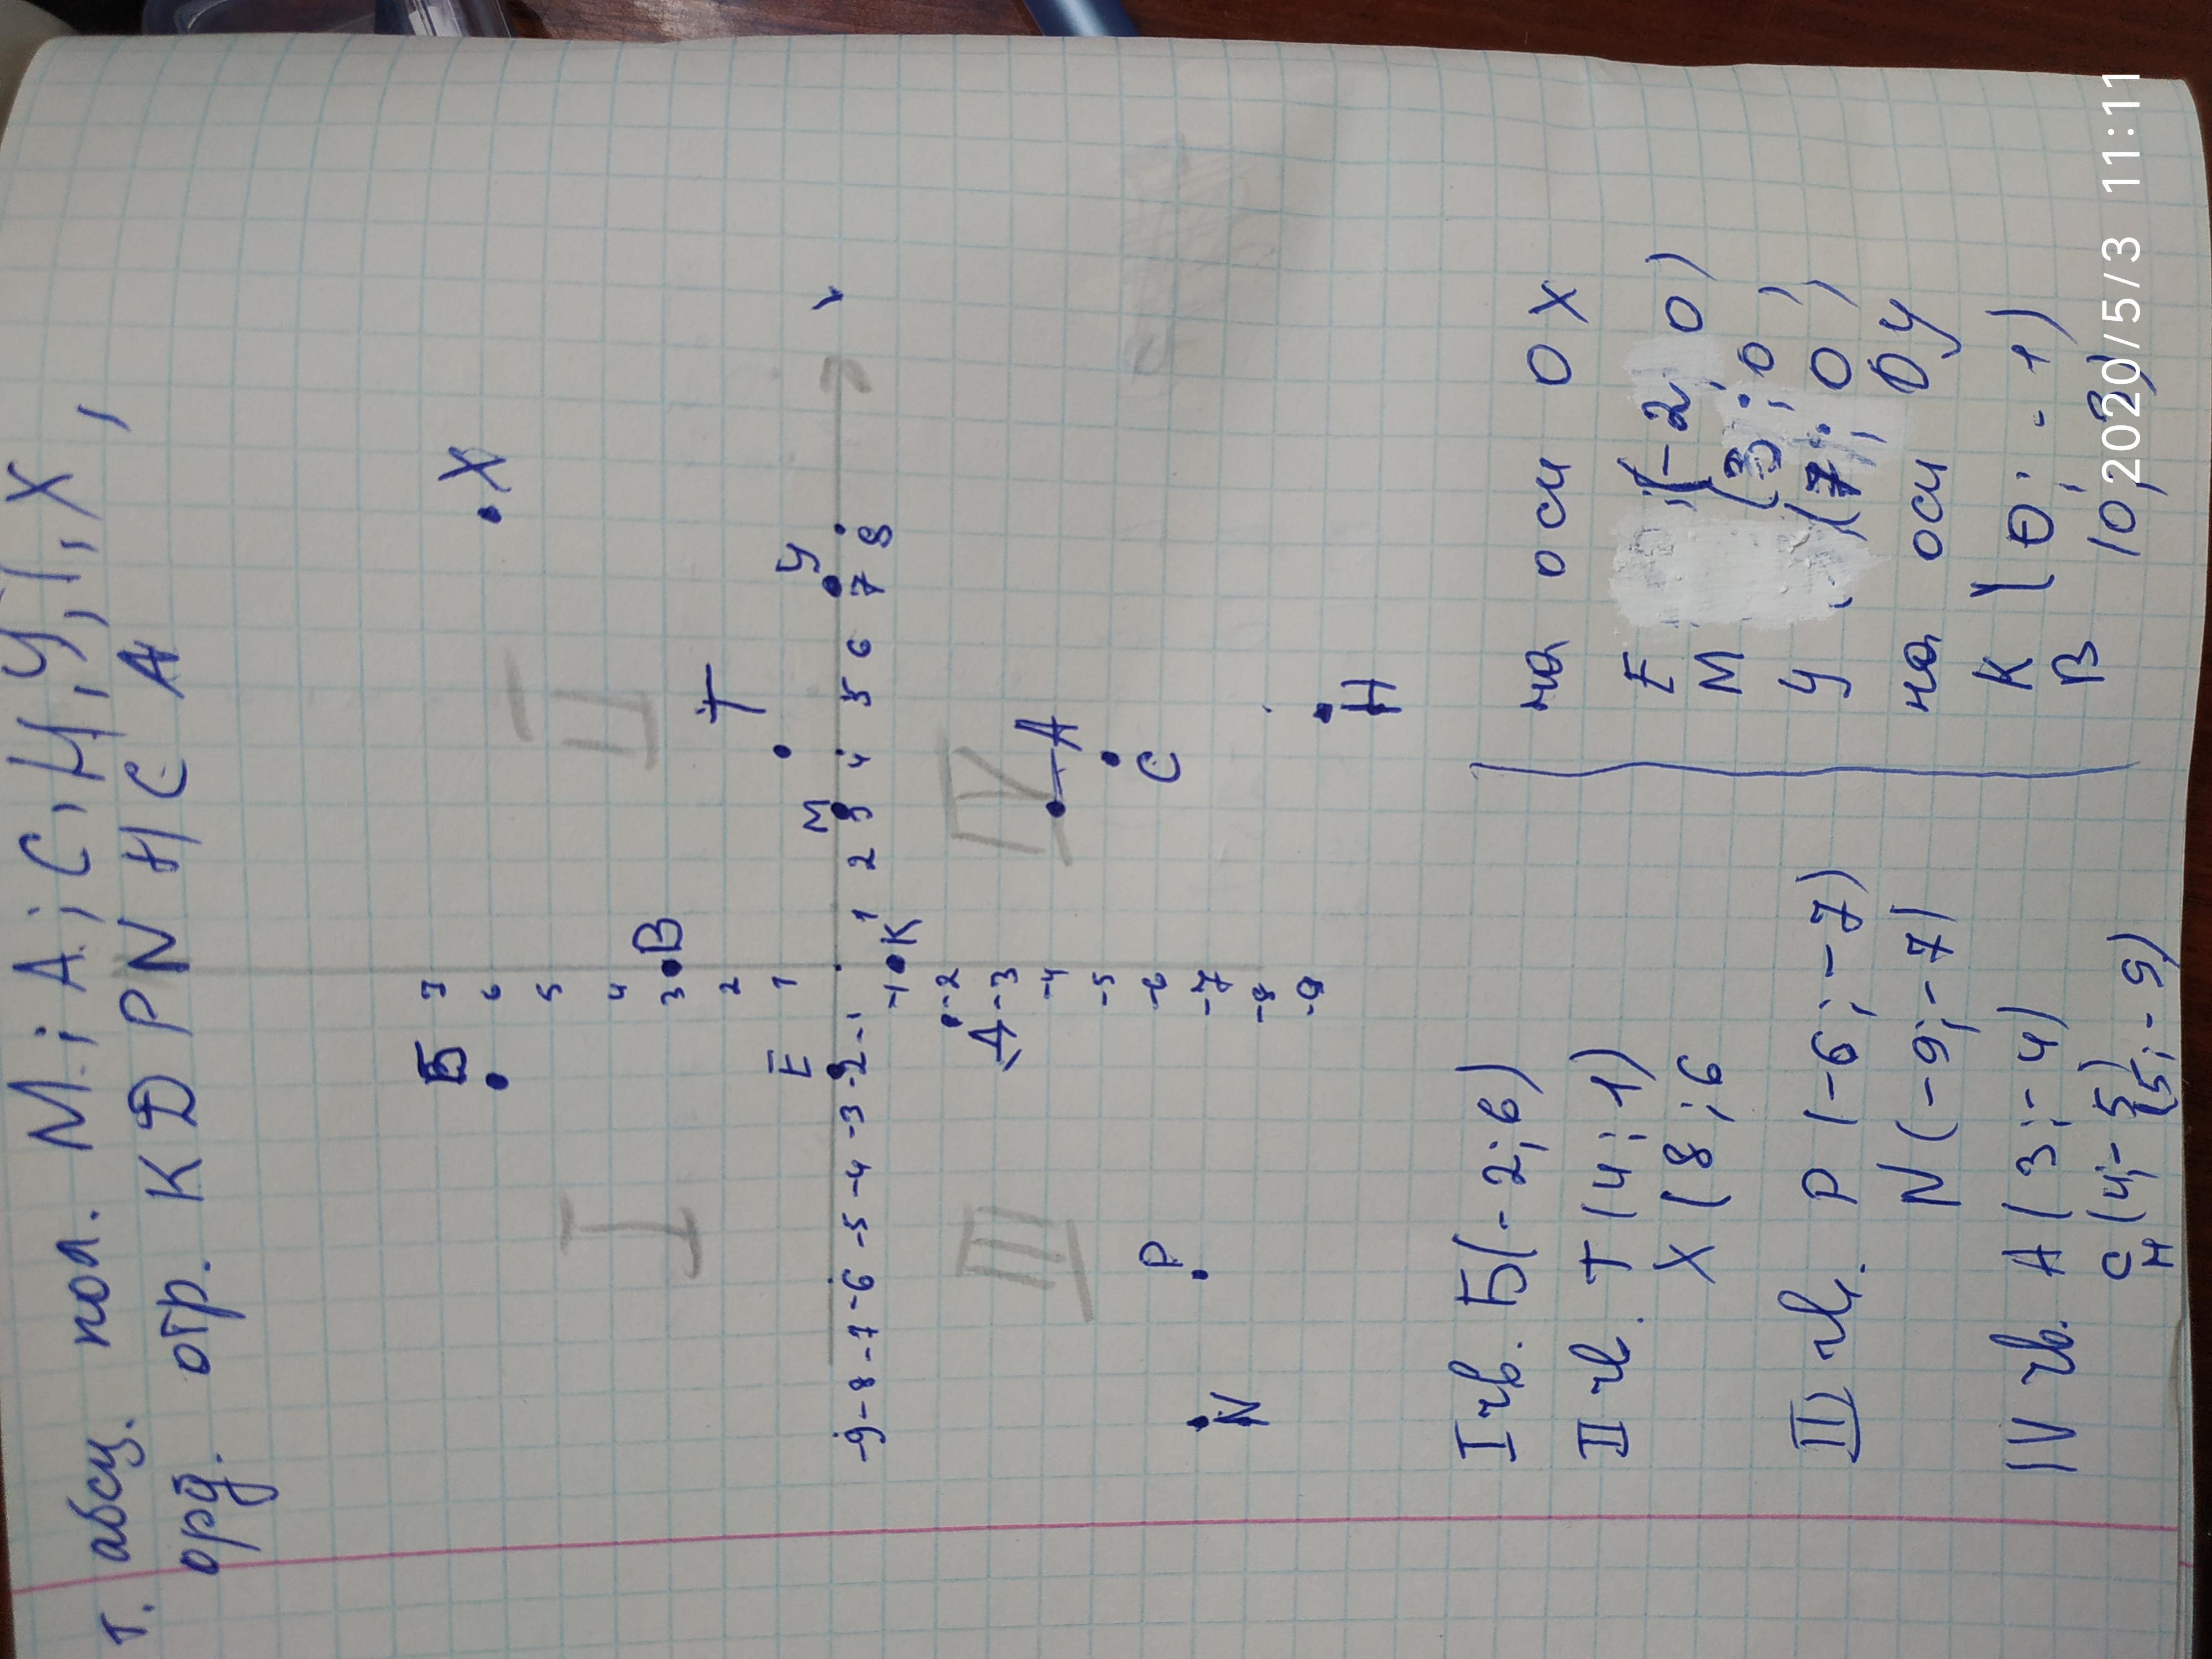 т. абсц. пол. М; А; С, Н, У, Т, Х,
орд. отр. К D P N H C A
7
Б
6
• X
5
4
3 В
2
Т
1
Е
М
У
-9 -8 -7 -6 -5 -4 -3 -2 -1 1 2 3 4 5 6 7 8
-1 К
-2
Д -3
-4 А
-5 С
Р -6
N -7
-8
-9 Н
I II
III IV
I чв. Б(-2;6)
II чв. Т(4;1)
Х(8;6
III чв. Р(-6;-7)
N(-9;-7)
IV чв. А(3;-4)
С(4;-5)
Н(5;-9)
на оси ОХ
Е (-2;0)
М (3;0)
У (7;0)
на оси ОУ
К (0;-1)
В (0;3)
2020/5/3 11:11